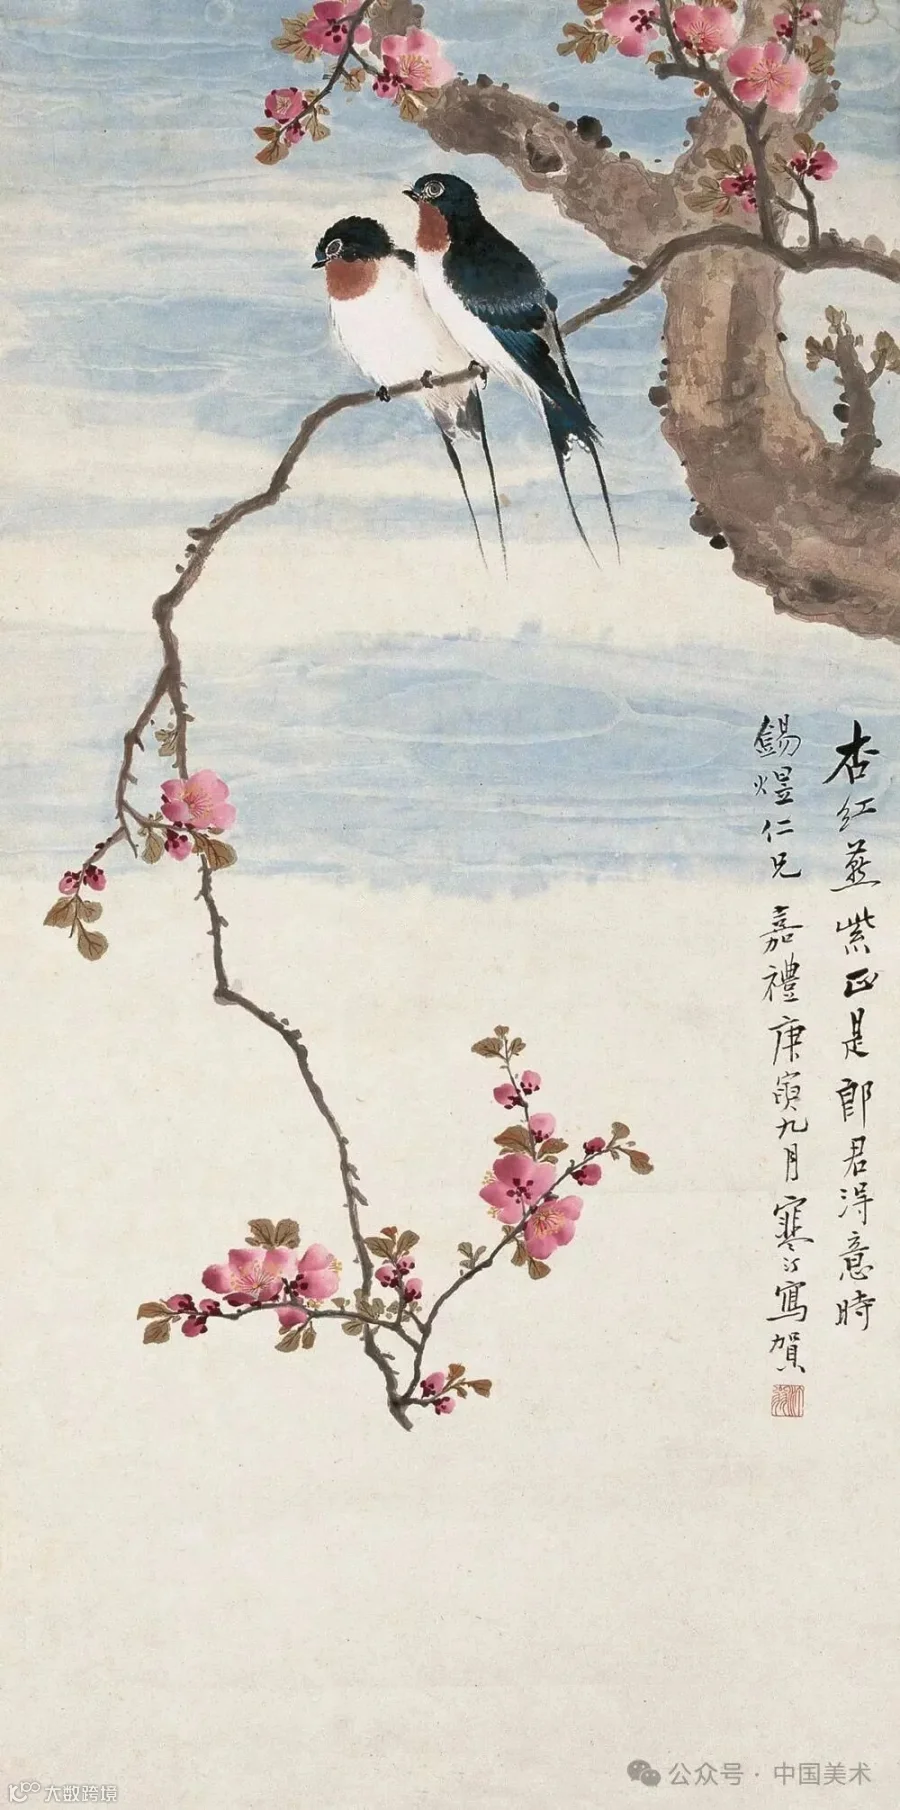 杏红燕紫正是郎君得意时
錫煜仁兄嘉禮庚寅九月寒汀寫賀
公众号·中国美术
大数跨境